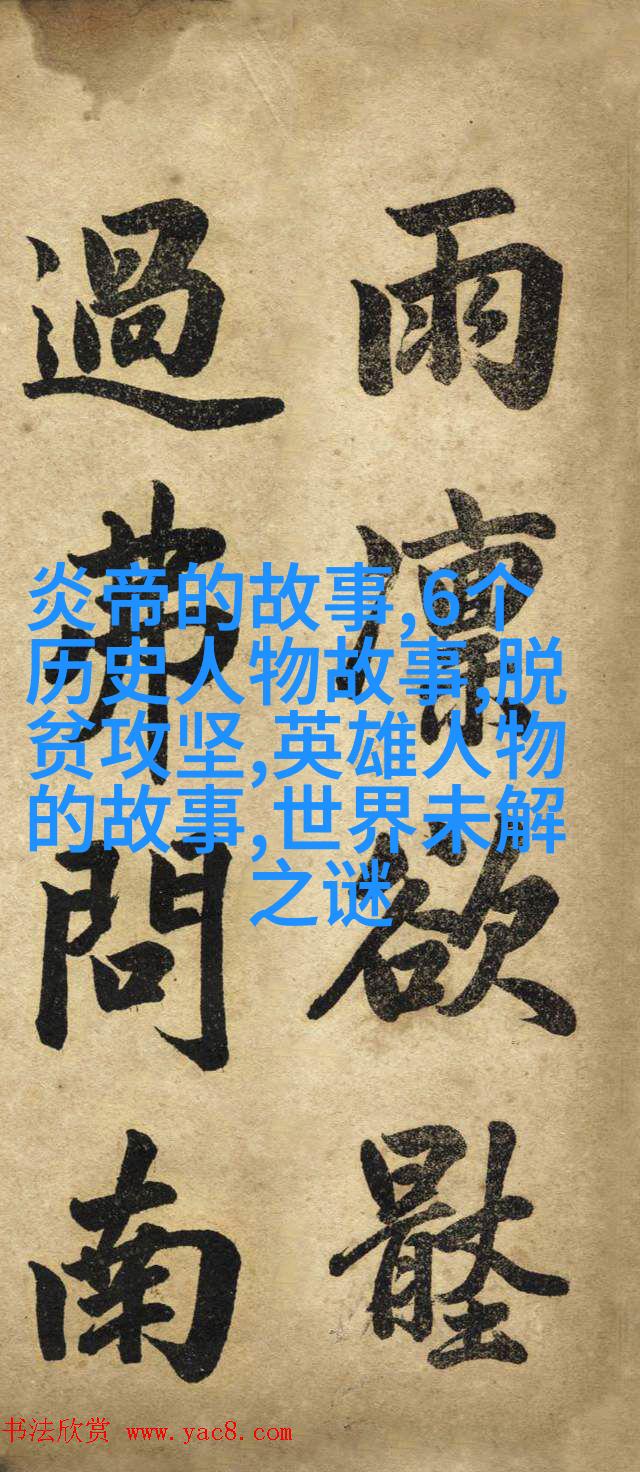 雨欲
過問南
炎帝的故事,6个
历史人物故事,脱
贫攻坚,英雄人物
的故事,世界未解
之谜
书法欣赏 www.yac8.com